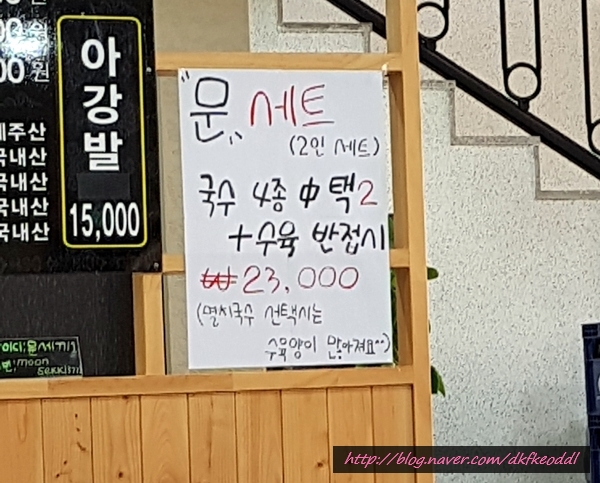 원
00원
00원
제주산
국내산
국내산
국내산
국내산
아강발
15,000
"문" 세트
(2인 세트)
국수 4종 中 택2
+수육 반접시
₩23,000
(멸치국수 선택시는
수육양이 많아져요^^)
moon
http://blog.naver.com/dkfkeoddl